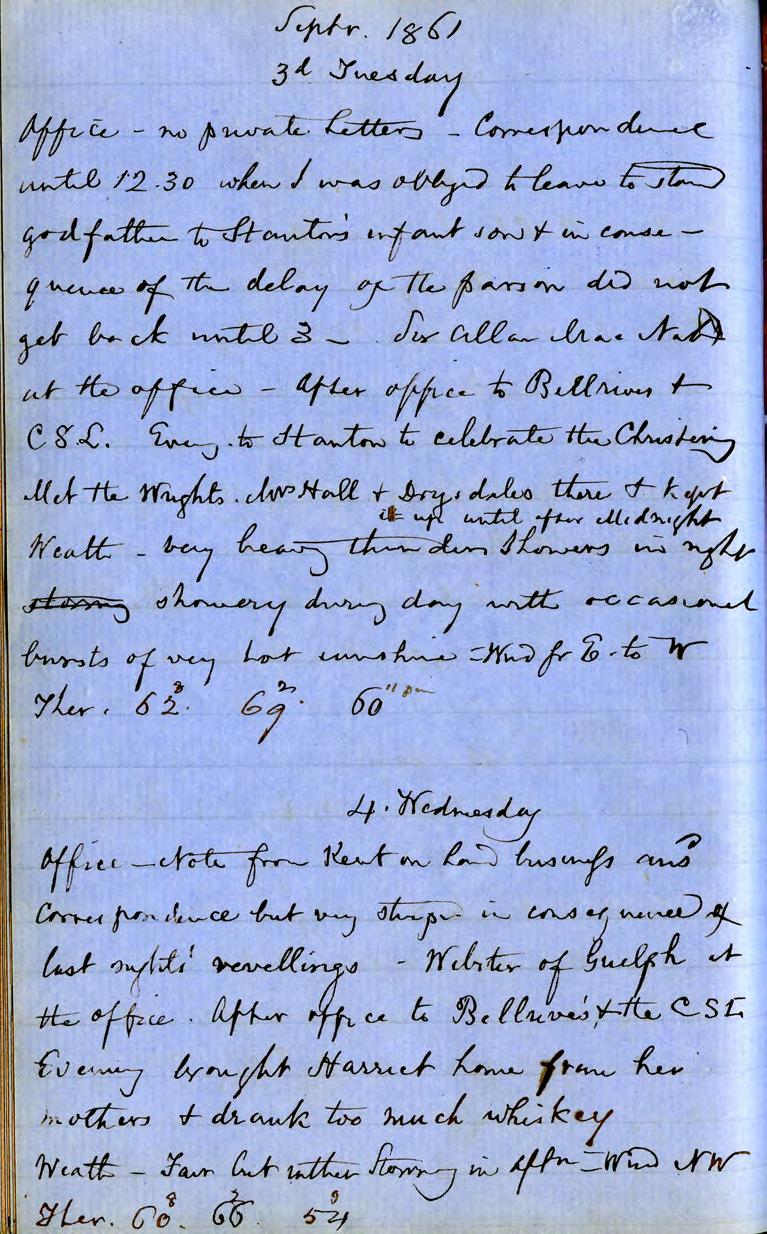 Septr. 1861
3d Tuesday
Office - no private Letters - Correspondence
until 12.30 when I was obliged to leave to stand
godfather to Stanton's infant son & in conse-
quence of the delay of the parson did not
get back until 3 - Sir Allan MacNab
at the office - After office to Bellrives &
C S L. Eveng. to Stanton to celebrate the Christening
Met the Wrights. Mrs Hall & Drysdales there & kept
it up until after Midnight
Weath - very heavy thunder showers in night
stormy showery during day with occasional
bursts of very hot sunshine = Wind fr E. to W
Ther. 62 8. 69 2. 60 11 pm
4. Wednesday
Office - Note from Kent on land business and
Correspondence but very stupid in consequence of
last nights' revellings - Webster of Guelph at
the office. After office to Bellrive's & the C S L
Evening brought Harriet home from her
mothers & drank too much whiskey
Weath - Fair but rather Stormy in aftn = Wind NW
Ther. 60 8. 66 2. 54 9